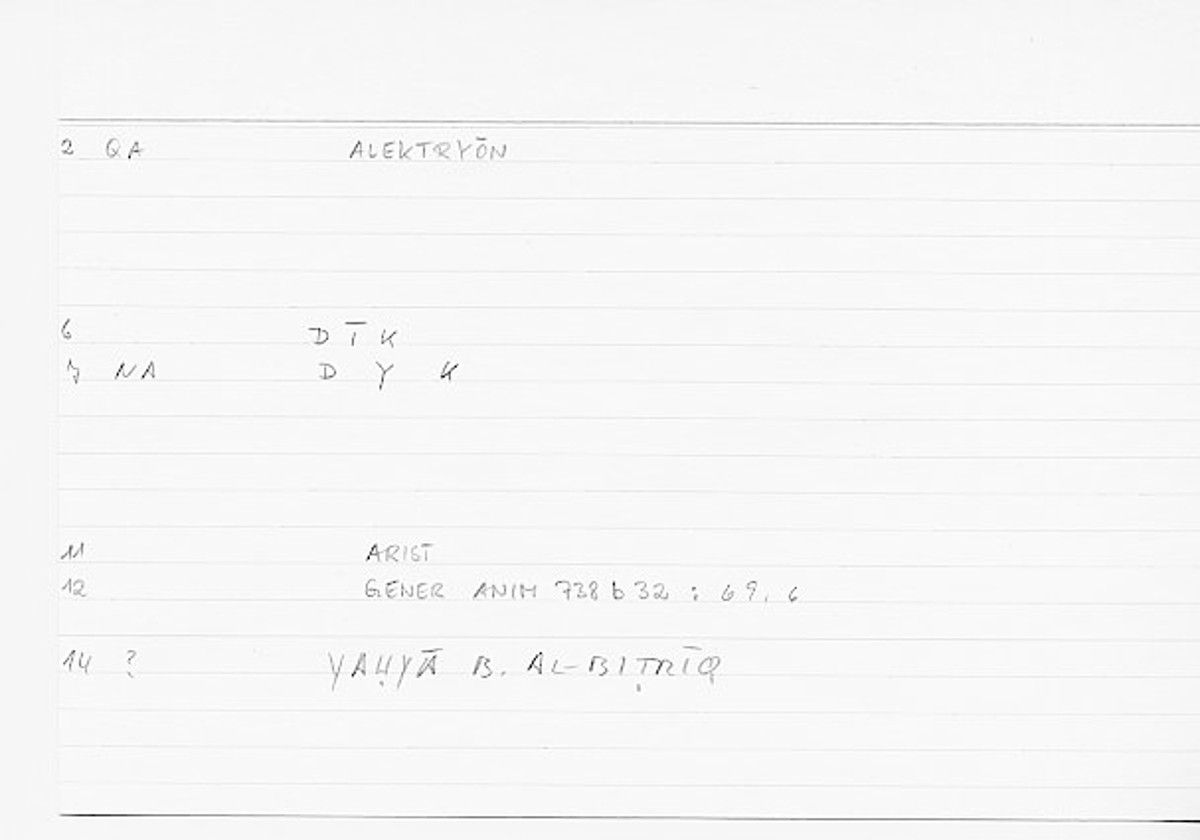 2 QA ALEKTRYŌN
6 D Ī K
7 NA D Y K
11 ARIST
12 GENER ANIM 738 b 32 : 69, 6
14 ? YAḤYĀ B. AL-BIṬRĪQ